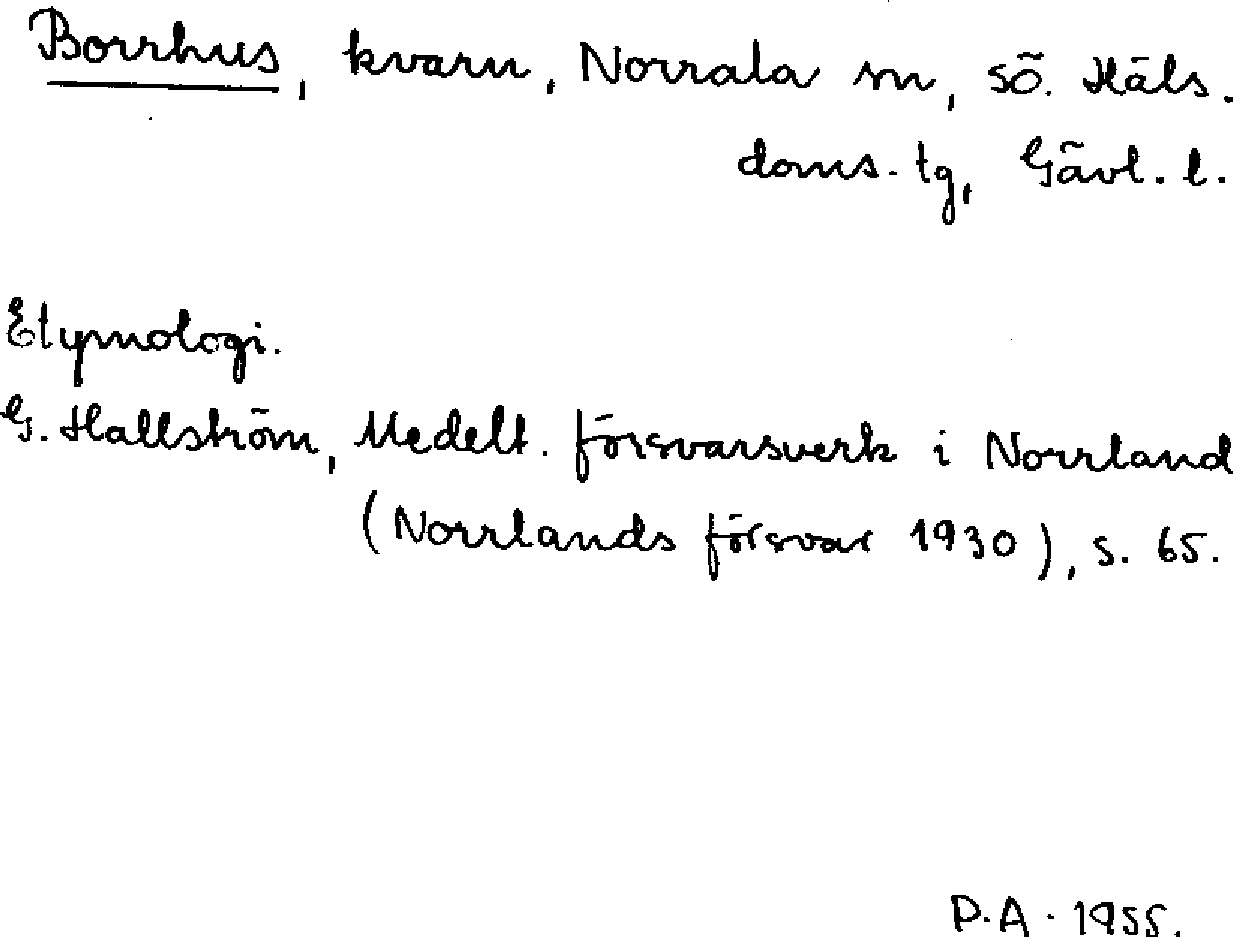 Borrhus, kvarn, Norrala sn, sö. Häls.
doms. tg, Gävl. l.
Etymologi.
G. Hallström, Medelt. försvarsverk i Norrland
(Norrlands försvar 1930), s. 65.
P.A. 1955.